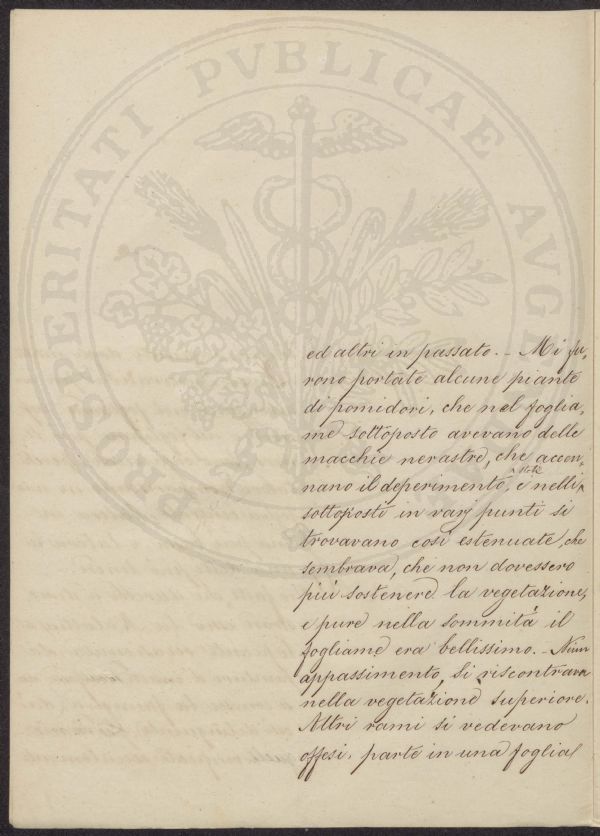 PROSPERITATI PVBLICAE AVGE
ed altri in passato. – Mi fu,
rono portate alcune piante
di pomidori, che nel foglia,
me sottoposto avevano delle
macchie nerastre, che accen,
nano il deperimento, e nelli
sottoposti in varj punti si
trovavano così estenuate, che
sembrava, che non dovessero
più sostenere la vegetazione,
e pure nella sommità il
fogliame era bellissimo. – Niun
appassimento, si riscontrava
nella vegetazione superiore.
Altri rami si vedevano
offesi, parte in una foglia